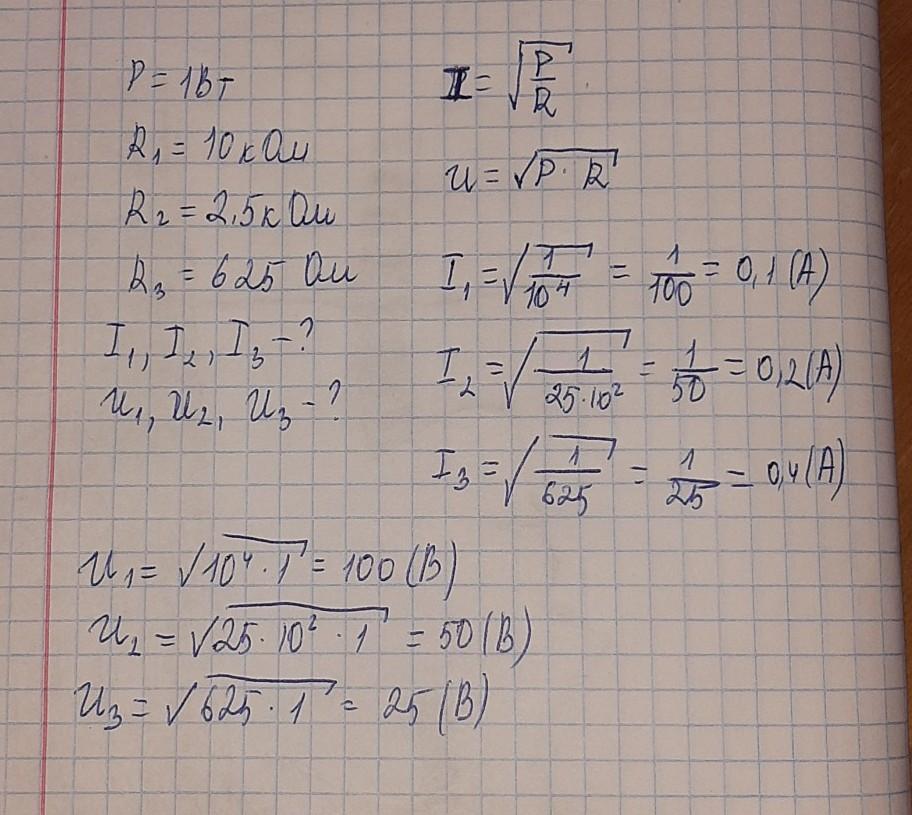 P = 1Вт
R₁ = 10 кОм
R₂ = 2.5 кОм
R₃ = 625 Ом
I₁, I₂, I₃ - ?
U₁, U₂, U₃ - ?
I = √(P/R)
U = √(P · R)
I₁ = √(1/10⁴) = 1/100 = 0,1 (А)
I₂ = √(1/(25·10²)) = 1/50 = 0,2 (А)
I₃ = √(1/625) = 1/25 = 0,4 (А)
U₁ = √(10⁴ · 1) = 100 (В)
U₂ = √(25 · 10² · 1) = 50 (В)
U₃ = √(625 · 1) = 25 (В)